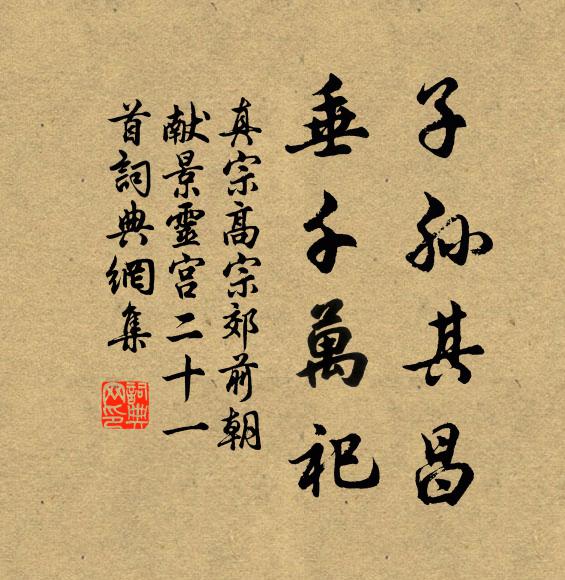 子孙其昌
垂千萬祀
真宗高宗郊前朝
献景靈宫二十一
首詞典網集
詞典网印